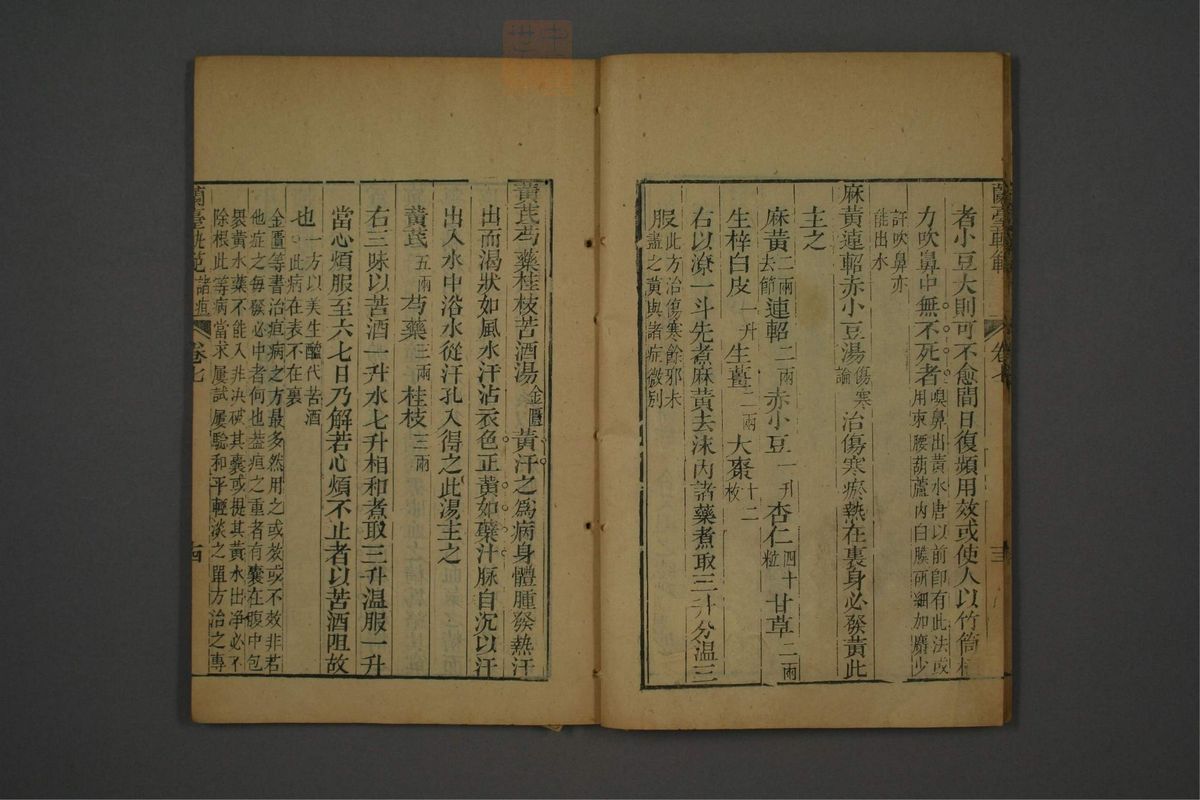 者小豆大則可不愈間日復頻用效或使人以竹筒極
力吹鼻中無不死者嗅鼻出黃水唐以前即有此法或
用束腰葫蘆內白膜研細加麝少
許吹鼻亦
能出水
麻黃連軺赤小豆湯傷寒論治傷寒瘀熱在裏身必發黃此
主之
麻黃二兩去節連軺二兩赤小豆一升杏仁四十粒甘草二兩
生梓白皮一升生薑二兩大棗十二枚
右以潦水一斗先煮麻黃去沫內諸藥煮取三升分溫三
服此方治傷寒餘邪未
盡之黃與諸症微別
黃芪芍藥桂枝苦酒湯金匱黃汗之為病身體腫發熱汗
出而渴狀如風水汗沾衣色正黃如蘗汁脉自沉以汗
出入水中浴水從汗孔入得之此湯主之
黃芪五兩芍藥三兩桂枝三兩
右三味以苦酒一升水七升相和煮取三升溫服一升
當心煩服至六七日乃解若心煩不止者以苦酒阻故
也一方以美生醯代苦酒
此病在表不在裏
金匱等書治疸病之方最多然用之或效或不效非若
他症之每發必中者何也蓋疸之重者有囊在腹中包
裹黃水藥不能入非決破其囊或提其黃水出淨必不
除根此等病當求屢試屢驗和平輕淡之單方治之專
蘭臺軌範 諸疸 卷七 十四